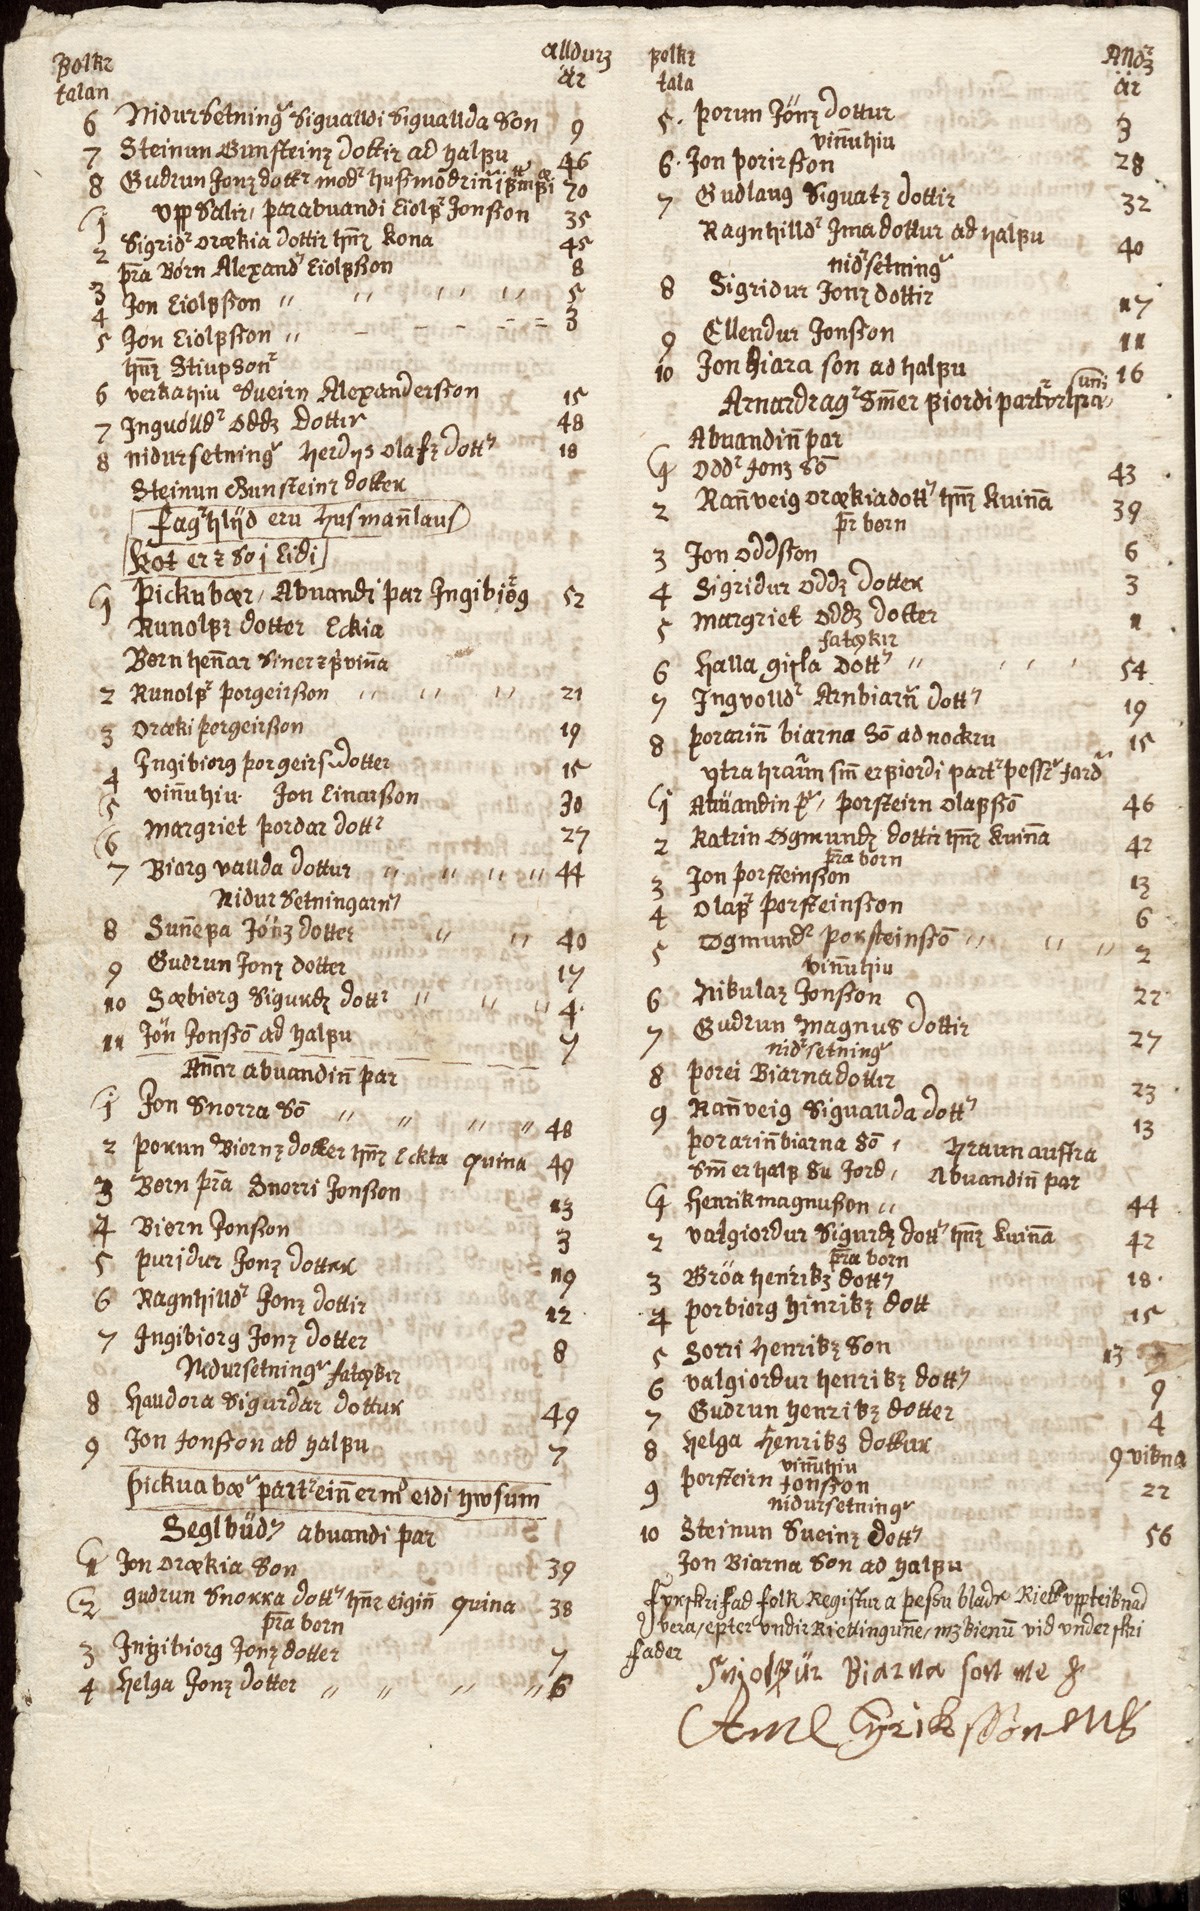 Folkz alldurz
talan ár
6 Nidursetningr Sigualldi Siguallda son 9
7 Steinun Gunsteinz dottir ad halfu 46
8 Gudrun Jonz dottr modr husmodrin 70
1 Uppsalir, fara buandi Eiolfr Jonsson 35
2 Sigridr orækia dottir hnz kona 45
fra Born Alexandr Eiolfsson 8
3 Jon Eiolfsson " " " " 5
4 Jon Eiolfsson " - - - - = 3
5 hnz Stiupsonr
6 verkahiu Sueirn Alexandersson 15
7 Inguolldr oddz Dottir 48
8 nidursetningr Herdijs olafz dottr 18
Steinun Gunsteinz dotter
fagrhlijd eru husmannlaus
kot er z so j Eidi
1 Fickubær, Abuandi þar Ingibiörg 52
Runolfz dotter Eckia
Børn hennar
2 Runolfr þorgeirsson " " " 21
3 Oræki þorgeirsson 19
4 Ingibiorg þorgeirs dotter 15
5 vinnuhiu Jon Einarsson 30
6 Margriet þordar dottr 27
7 Biorg vallda dottur " " " " 44
Nidursetningarnr
8 Sunnefa Jónz dotter " " 40
9 Gudrun Jonz dotter 17
10 Sæbiorg Sigurdz dottr " " " 4
11 Jón Jonsso ad halfu 7
Annar abuandin þar
1 Jon Snorra so " " " " 48
2 þorun Biornz dotter hnz Eckta quina 49
3 Børn þra Snorri Jonsson 13
4 Biørn Jonsson 3
5 þuridur Jonz dotter 19
6 Ragnhilldr Jonz dottir 12
7 Ingibiorg Jonz dotter 8
Nidursetningr fatøkir
8 Halldora Sigurdar dottur 49
9 Jon Jonsson ad halfu 7
Fickuabær partr einn er md eidi husum
Seglbúdr abuandi þar
1 Jon orækia son 39
2 gudrun Snorra dottr hnz eigin quina 38
þra born
3 Ingibiorg Jonz dotter 7
4 Helga Jonz dotter " " " " 6
folkz Alldrz
tala ár
5 þorun Jónz dottur 3
vinnuhiu
6 Jon þorirsson 28
7 Gudlaug Siguatz dottir 32
Ragnhilldr Jma dottur ad halfu 40
nidrsetningr
8 Sigridur Jonz dottir 17
9 Ellendur Jonsson 11
10 Jon kiara son ad halfu 16
Arnardragr Smer fiordi partr
Abuandin þar
1 oddr Jonz so 43
2 Rannveig orækia dottr hnz kuinna 39
þr børn
3 Jon oddsson 6
4 Sigridur oddz dotter 3
5 Margriet oddz dotter 11
fatøkir
6 Halla gisla dottr " " " " 54
7 Ingvolldr Arnbiarn dottr 19
8 þorarin biarna so ad nockru 15
ytra hraun sm er fiordi partr þessr Jardr
1 Abuandin þr, þorsteirn olafsso 46
2 katrin øgmundz dottir hnz kuinna 42
þra børn
3 Jon þorsteinsson 13
4 Olafr þorsteinsson 6
5 øgmundr þorsteinsso " " " 2
vinnuhiu
6 Nikulaz Jonsson 22
7 Gudrun Magnus dottir 27
nidrsetningr
8 þorei Biarna dottir 23
9 Rannveig Siguallda dottr 13
þorarin biarna so, hraun austra
Sm er half su Jord, Abuandin þar
1 Henrik magnusson " 44
2 valgiordur Sigurdz dottr hnz kuinna 42
þra børn
3 Bróa henrikz dottr 18
4 þorbiorg hinrikz dott 15
5 Sorri Henrikz son 13
6 valgiordur henrikz dottr 9
7 Gudrun henrikz dotter 4
8 Helga Henriks dottur 9 vikna
vinnuhiu
9 þorsteirn Jonsson 22
nidursetningr
10 Steinun Sueinz dottr 56
Jon Biarna son ad halfu
fyrskrifad folk Registur a þessu blade Riett uppteiknad
vera, epter undir Riettingunne, uid underskri
fader
Biarna son me h
Eyriksson